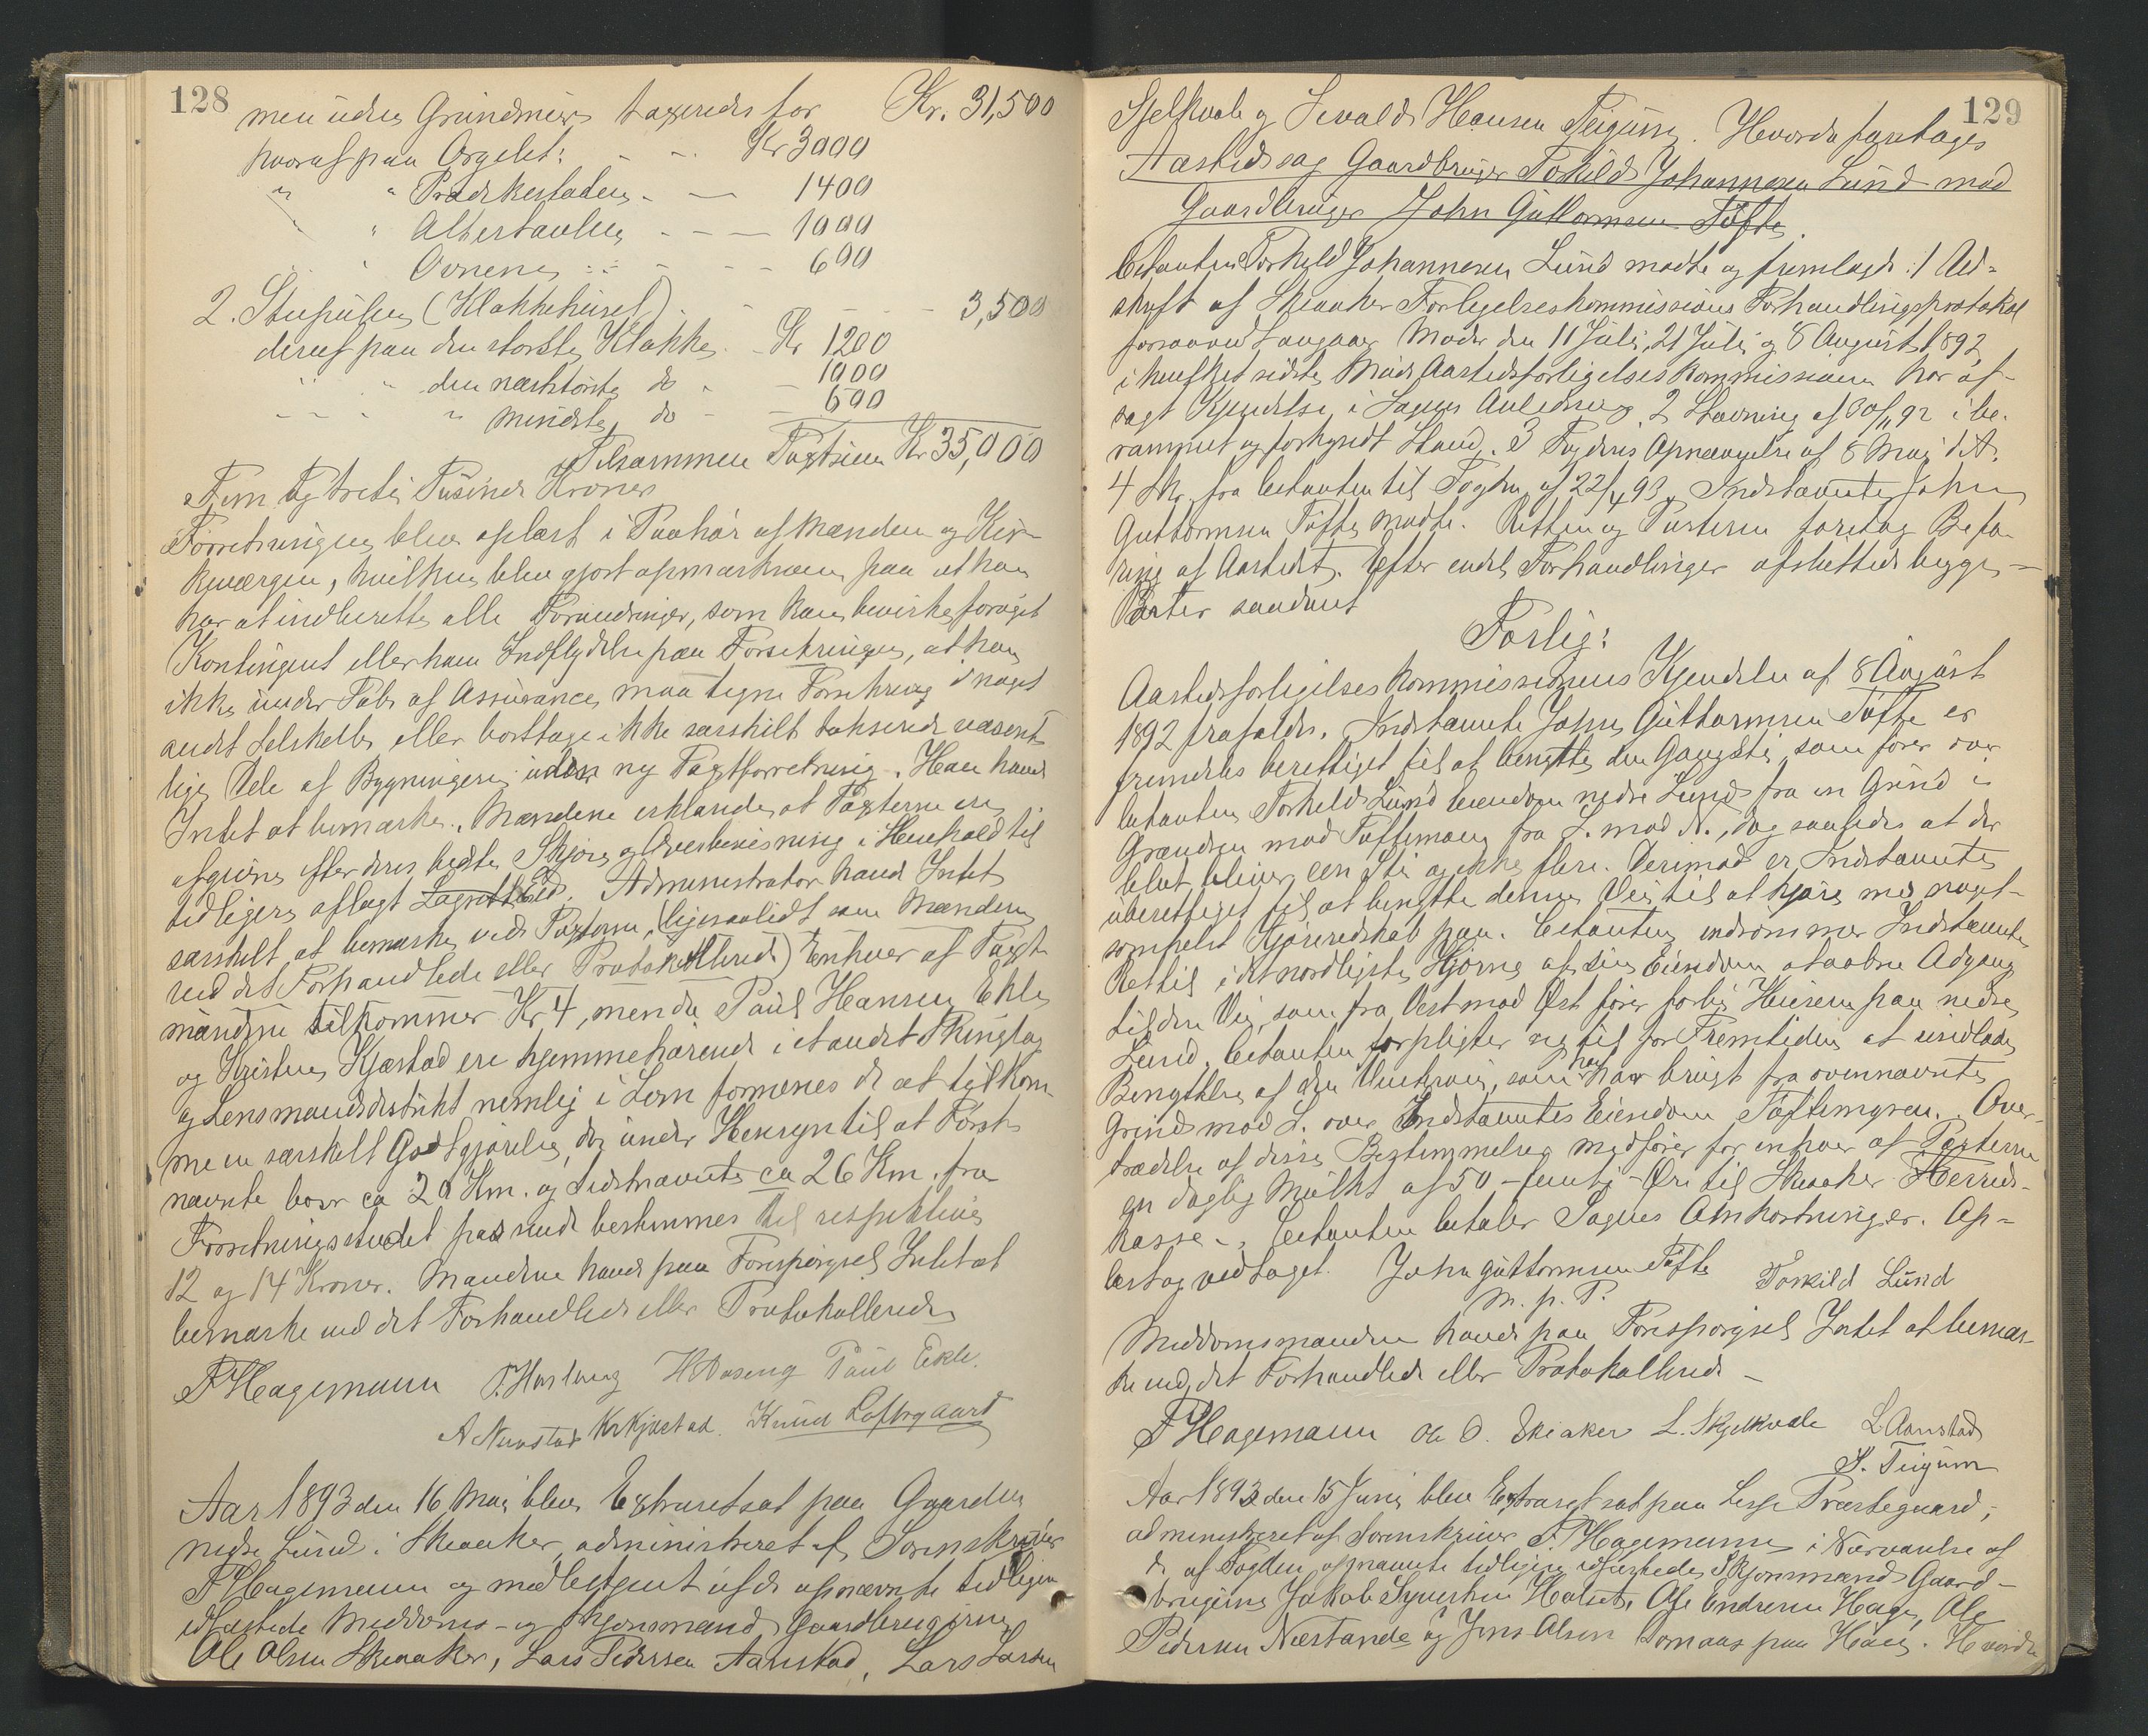 128
men uden Grundmur taxeredes for Kr. 31,500
hvoraf paa Orgelet: - - Kr 3000
" " Prædikestolen - — 1400
" " Altertavlen - - — 1000
" " Ovnene - - - 600
2. Støpulen (Klokkehuset) - - - 3,500
deraf paa den største Klokke - Kr 1200
" " den næststørste do - — 1000
" " " mindste do - — 600
Tilsammen Taxtsum Kr 35,000
Fem og treti Tusinde Kroner
Forretningen blev oplæst i Paahør af Mændene og Kir-
keværgen, hvilken blev gjort opmærksom paa at han
har at indberette alle Forandringer, som kan bevirke forøget
Kontingent eller have Indflydelse paa Forsikringen, at han
ikke under Tab af Assurance maa tegne Forsikring i noget
andet Selskab, eller borttage ikke særskilt takserede væsent-
lige Dele af Bygningerne uden ny Taxtforretning. Han havde
Intet at bemærke. Mændene erklærede, at Taxterne ere
afgivne efter deres bedste Skjøn og Overbevisning i Henhold til
tidligere aflagt Lagretteed. Administrator havde Intet
særskilt at bemærke ved Taxterne, (ligesaalidt som Mændene
ved det Forhandlede eller Protokollerede) Enhver af Taxt-
mændene tilkommer Kr 4, men da Paul Hansen Ekle
og Kristen Kjæstad ere hjemmehørende i et andet Thinglag
og Lensmandsdistrikt nemlig i Lom formenes de at tilkom-
me en særskilt Godtgjørelse, der under Hensyn til at Først-
nævnte boer ca 20 Km. og Sidstnævnte ca 26 Km. fra
Forretningsstedet passende bestemmes til respektive
12 og 14 Kroner. Mændene havde paa Forespørgsel Intet at
bemærke ved det Forhandlede eller Protokollerede
F Hagemann P. Harlaug H Aaseng Paul Ekle.
A Nunstad Kr Kjæstad. Knud Loftsgaard
Aar 1893 den 16 Mai blev Extraret sat paa Gaarden
nedre Lund i Skiaaker, administreret af Sorenskriver
F Hagemann og medbetjent af de opnævnte tidligere
edfæstede Meddoms- og Skjønsmænd Gaardbrugerne
Ole Olsen Skiaaker, Lars Pedersen Aanstad, Lars Larsen
129
Sjelkvale og Sivald Hansen Teigum. Hvorda foretages
Aastedssag Gaardbruger Torkild Johannesen Lund mod
Gaardbruger John Guttormsen Tøfte.
Citanten Torkild Johannesen Lund mødte og fremlagde: 1 Ud-
skrift af Skiaaker Forligelseskommissions Forhandlingsprotokol
forsaavidt angaar Møder den 11 Juli, 21 Juli og 8 August 1892,
i hvilket sidste Møde Aastedsforligelseskommissionen har af-
sagt Kjendelse i Sagens Anledning. 2 Stævning af 30/11 92 i be-
rammet og forkyndt Stand. 3 Fogdens Opnævnelse af 8 Mai d. A.
4 Skr. fra Citanten til Fogden af 22/4 93. Indstævnte John
Guttormsen Tøfte mødte. Retten og Parterne foretog Befa-
ring af Aastedet. Efter endel Forhandlinger afsluttede begge
Parter saadant
Forlig:
Aastedsforligelseskommissionens Kjendelse af 8 August
1892 frafaldes. Indstævnte John Guttormsen Tøfte er
fremdeles berettiget til at benytte den Gangsti, som fører over
Citanten Torkild Lunds Eiendom nedre Lund fra en Grind i
Grændsen mod Tøftemoen fra S. mod N., dog saaledes at der
blot bliver een Sti og ikke flere. Derimod er Indstævnte
uberettiget til at benytte denne Vei til at kjøre med noget-
somhelst Kjøreredskab paa. Citanten indrømmer Indstævnte
Ret til i det nordligste Hjørne af sin Eiendom at aabne Adgang
til den Vei, som fra Vest mod Øst fører forbi Husene paa nedre
Lund. Citanten forpligter sig til for Fremtiden at undlade
Benyttelse af den Vintervei, som han har brugt fra ovennævnte
Grind mod S. over Indstævntes Eiendom Tøftemyren. Over-
trædelse af disse Bestemmelser medfører for enhver af Parterne
en daglig Mulkt af 50 - femti - Øre til Skiaaker Herreds-
kasse. - Citanten betaler Sagens Omkostninger. Op-
læst og vedtaget. John Guttormsen Tøfte Torkild Lund
m. p. P.
Meddomsmændene havde paa Forespørgsel Intet at bemær-
ke ved det Forhandlede eller Protokollerede -
F Hagemann Ole O. Skiaker L. Skjelkvale L Aanstad
S. Teigum
Aar 1893 den 15 Juni blev Extraret sat paa Lesje Præstegaard,
administreret af Sorenskriver F. Hagemann i Nærværelse af
de af Fogden opnævnte tidligere edfæstede Skjønsmænd Gaard-
brugerne Jakob Syversen Holset, Ole Endresen Hage, Ole
Pedersen Næstande og Jens Olsen Lomaas paa . Hvorda